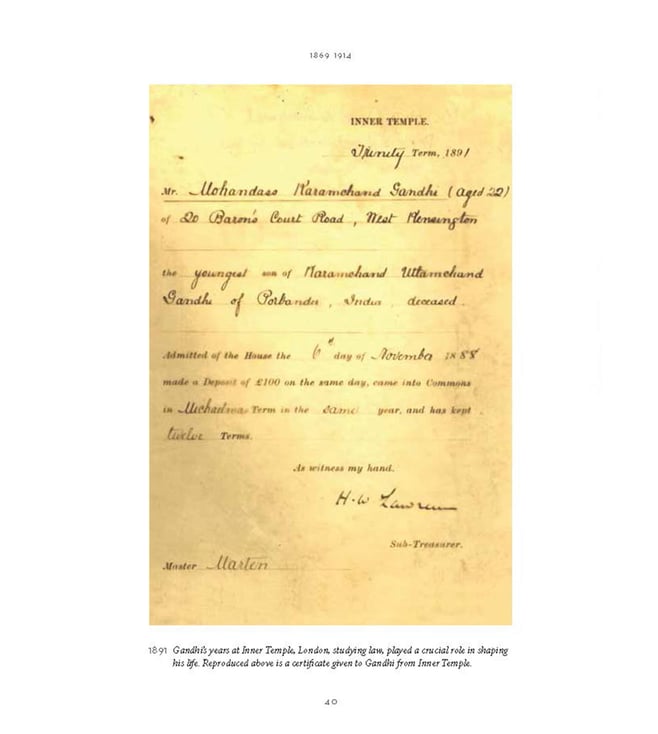 1869 1914
INNER TEMPLE.
Trinity Term, 1891
Mr. Mohandass Karamchand Gandhi (aged 22)
of 20 Baron's Court Road, West Kensington
the youngest son of Karamchand Uttamchand
Gandhi of Porbandar, India, deceased.
Admitted of the House the 6th day of November 1888
made a Deposit of £100 on the same day, came into Commons
in Michaelmas Term in the same year, and has kept
twelve Terms.
As witness my hand.
H. W. Lawrence
Sub-Treasurer.
Master Marten
1891 Gandhi's years at Inner Temple, London, studying law, played a crucial role in shaping
his life. Reproduced above is a certificate given to Gandhi from Inner Temple.
40